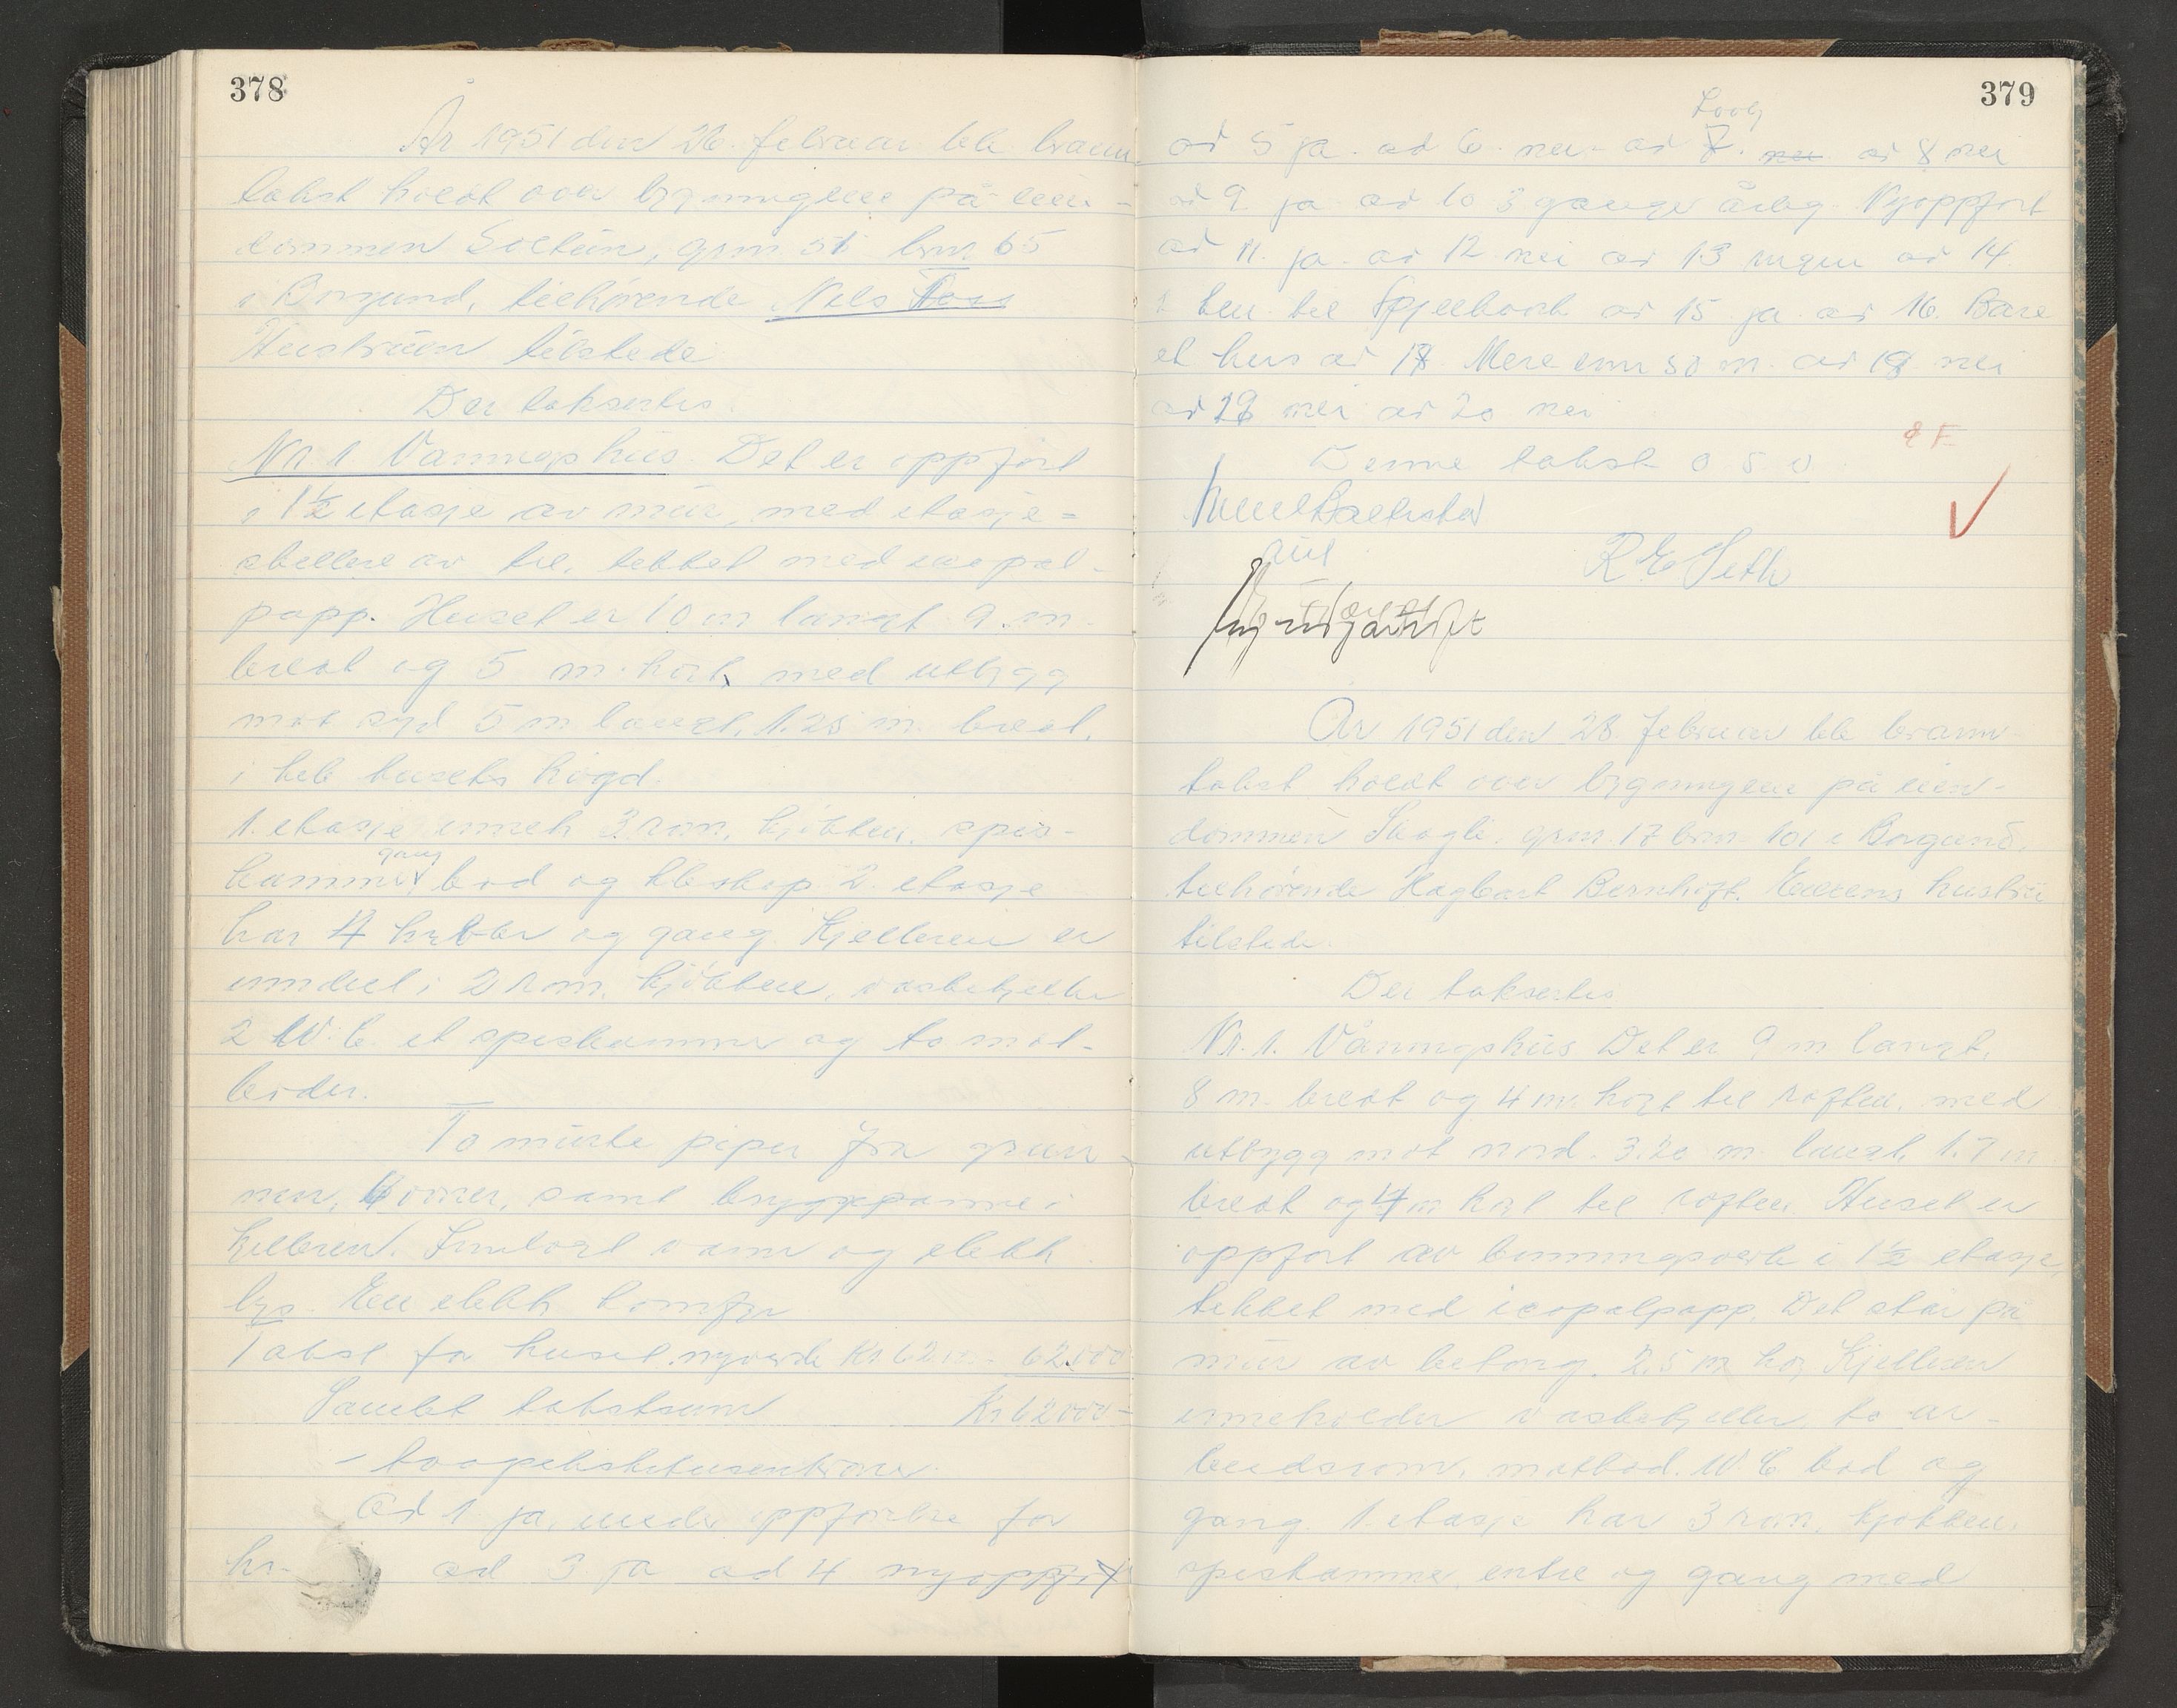 378
År 1951 den 26. februar ble brann
takst holdt over bygningene på eien-
dommen Soltun, grm 51 brm 65
i Borgund, tilhørende Nils Foss
Hustruen tilstede
Der takseres:
Nr. 1. Vanningshus. Det er oppført
i 1½ etasje av mur, med etasje=
skillere av tre, tekket med icopal-
papp. Huset er 10 m langt 9 m
bredt og 5 m. høit, med utbygg
mot syd 5 m langt, 1.25 m. bredt,
i hele husets høgd.
1. etasje inneh 3 rom, kjøkken, spis-
kammer, gang bod og kleskap 2. etasje
har 4 hybler og gang. Kjelleren er
inndelt i 2 rom, kjøkken, vaskekjeller
2 W.C. et spiskammer og to mat-
boder.
To murte piper fra grun-
nen, 4 ovner, samt bryggepanne i
kjelleren. Innlagt vann og elekk
lys. En elekk komfyr
Takst for huset nyverdi Kr 62.000- 62.000
Samlet takstsum Kr 62000-
- toogsekstitusenkroner.
Ad 1 ja, under oppførelse for
kr. ad 3 ja ad 4 nyoppført
379
ad 5 ja. ad 6. nei- ad 7. Loog nei ad 8 nei
ad 9 ja ad 10 3 ganger årlig. Nyoppført
ad 11. ja. ad 12 nei ad 13 ingen ad 14
ad 15 ja. ad 16. Bare
et hus ad 17. Mere enn 30 m. ad 18 nei
ad 19 nei ad 20 nei
Denne takst o s v
R E Seth
År 1951 den 28. februar ble brann
takst holdt over bygningene på eien-
dommen Skogly. grm. 17 brm. 101 i Borgund,
tilhørende Hagbart Bernhoft. Eierens hustru
tilstede.
Der takseres
Nr. 1. Våningshus Det er 9 m langt,
8 m. bredt og 4 m. høgt til røften, med
utbygg mot nord. 3.20 m. langt, 1.7 m
bredt og 4 m høit til røften. Huset er
oppført av bindingsverk i 1½ etasje,
tekket med icopalpapp. Det står på
mur av betong. 2,5 m høg Kjelleren
inneholder vaskekjeller, to ar-
beidsrom, matbod. W.C. bod og
gang. 1. etasje har 3 rom, kjøkken.
spiskammer, entre og gang med